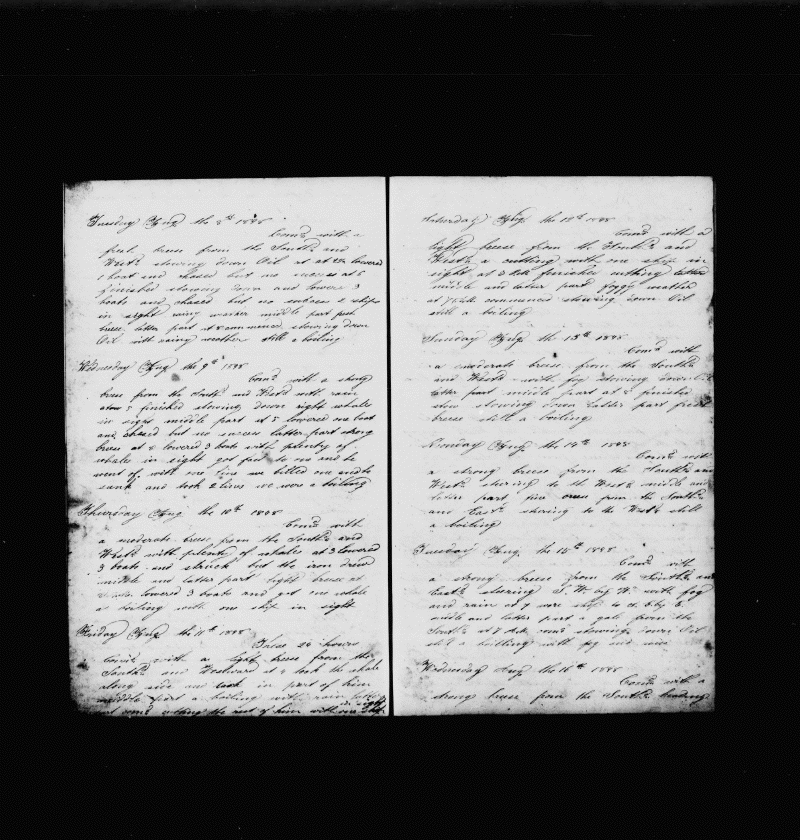 Tuesday Aug the 8th
Comd with a
fresh breese from the Southd and
Westd stowing down Oil at at lowered
1 boat and chased but no sucsess at 5
finished stowing down and lowered 3
boats and chased but no sucsess 2 ships
in sight rainy weather middle part fresh
breese latter part at 8 commenced stowing down
Oil with rainy weather still a boiling
Wednesday Aug the 9th
Comd with a strong
breese from the Southd and Westd with rain
at 5 finished stowing down right whales
in sight middle part at 5 lowered one boat
and chased but no sucsess latter part strong
breese at lowered 3 boats with plenty of
whales in sight got fast to one and he
went of with one line we killed one and he
sank and took 2 lines we were a boiling
Thursday Aug the 10th
Comd with
a moderate breese from the Southd and
Westd with plenty of whales at 3 lowered
3 boats and struck but the iron drew
middle and latter part light breese at
lowered 3 boats and got one whale
a boiling with one ship in sight
Friday Aug the 11th
These 24 hours
Comd with a light breese from the
Southd and Westward at took the whale
along side and took in part of him
middle part a boiling with rain latter
part comd cutting the rest of him with one ship
in sight
Saturday Aug the 12th
Comd with a
light breese from the Southd and
Westd a cutting with one ship in
sight at finished cutting latter
middle and latter part foggy weather
at commenced stowing down Oil
still a boiling
Sunday Aug the 13th
Comd with
a moderate breese from the Southd
and Westd with fog stowing down
latter part middle part at finished
stowing down latter part fresh
breese still a boiling
Monday Aug the 14th
Comd with
a strong breese from the Southd and
Westd stering to the Westd middle and
latter part breese from the Southd
and Eastd stering to the Westd still
a boiling
Tuesday Aug the 15th
Comd with
a strong breese from the Southd and
Eastd stearing S. W. by W. with fog
and rain at 7 ware ship to
middle and latter part a gale from the
Southd at 7 comd stowing down Oil
still a boilling with fog and rain
Wednesday Aug the 16th
Comd with a
strong breese from the Southd heading